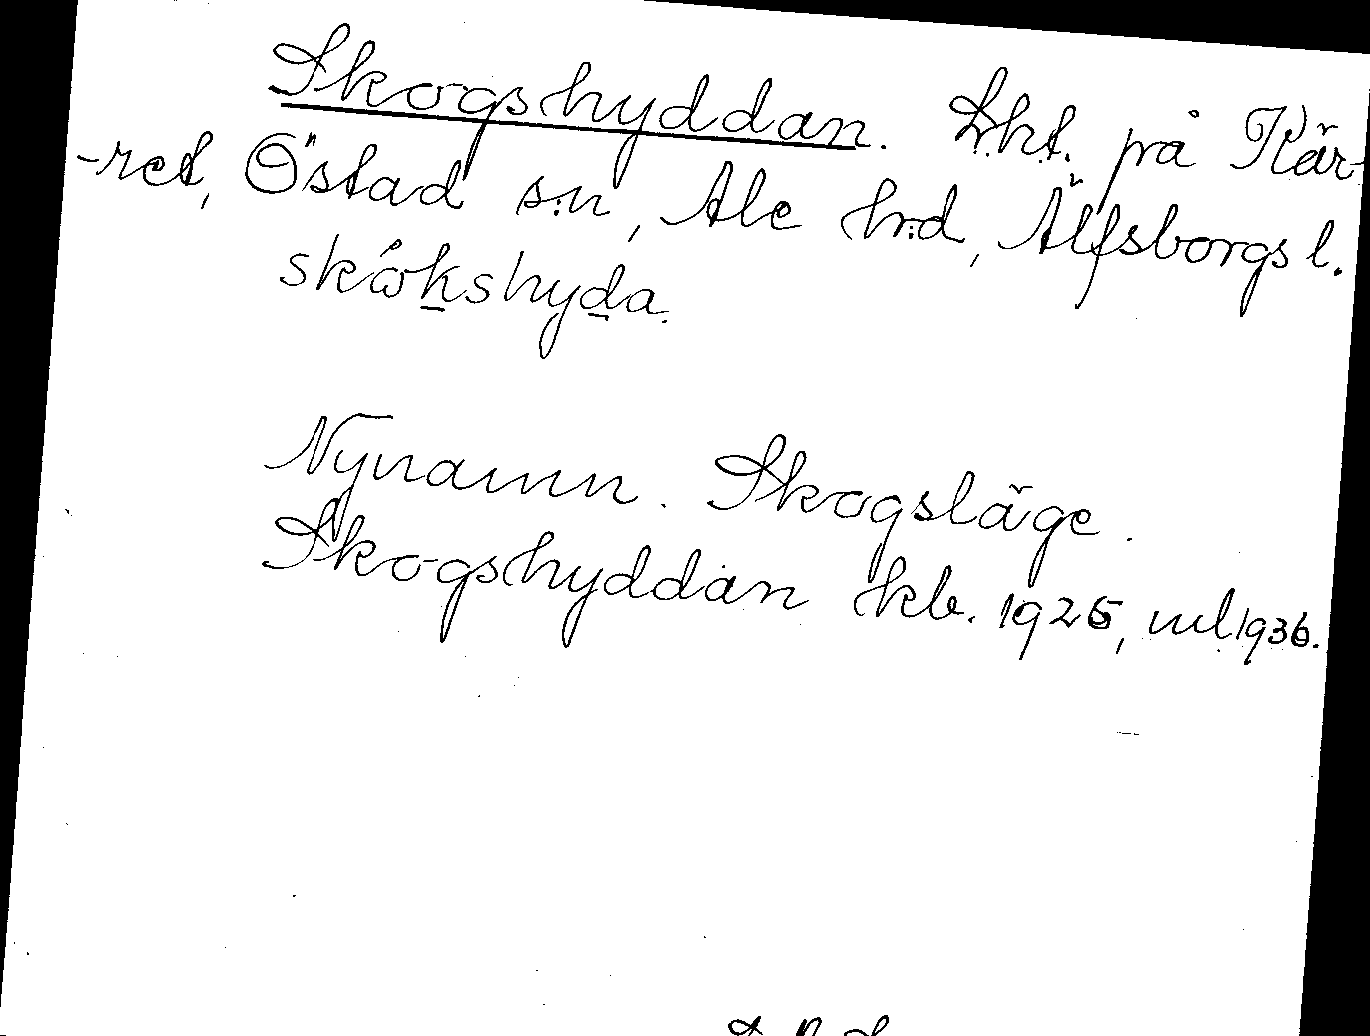 Skogshyddan. Lht. på Kär-
-ret, Östad s:n, Ale h:d, Älfsborgs l.
skώkshyda.
Nynamn. Skogsläge.
Skogshyddan kb. 1925, ml. 1936.